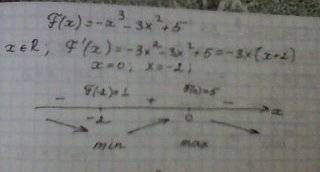 F(x)=-x³-3x²+5
x∈R; F'(x)=-3x²-3x²+5=-3x(x+2)
x=0; x=-2;
F(-2)=1 F(0)=5
- + - x
-2 0
min max